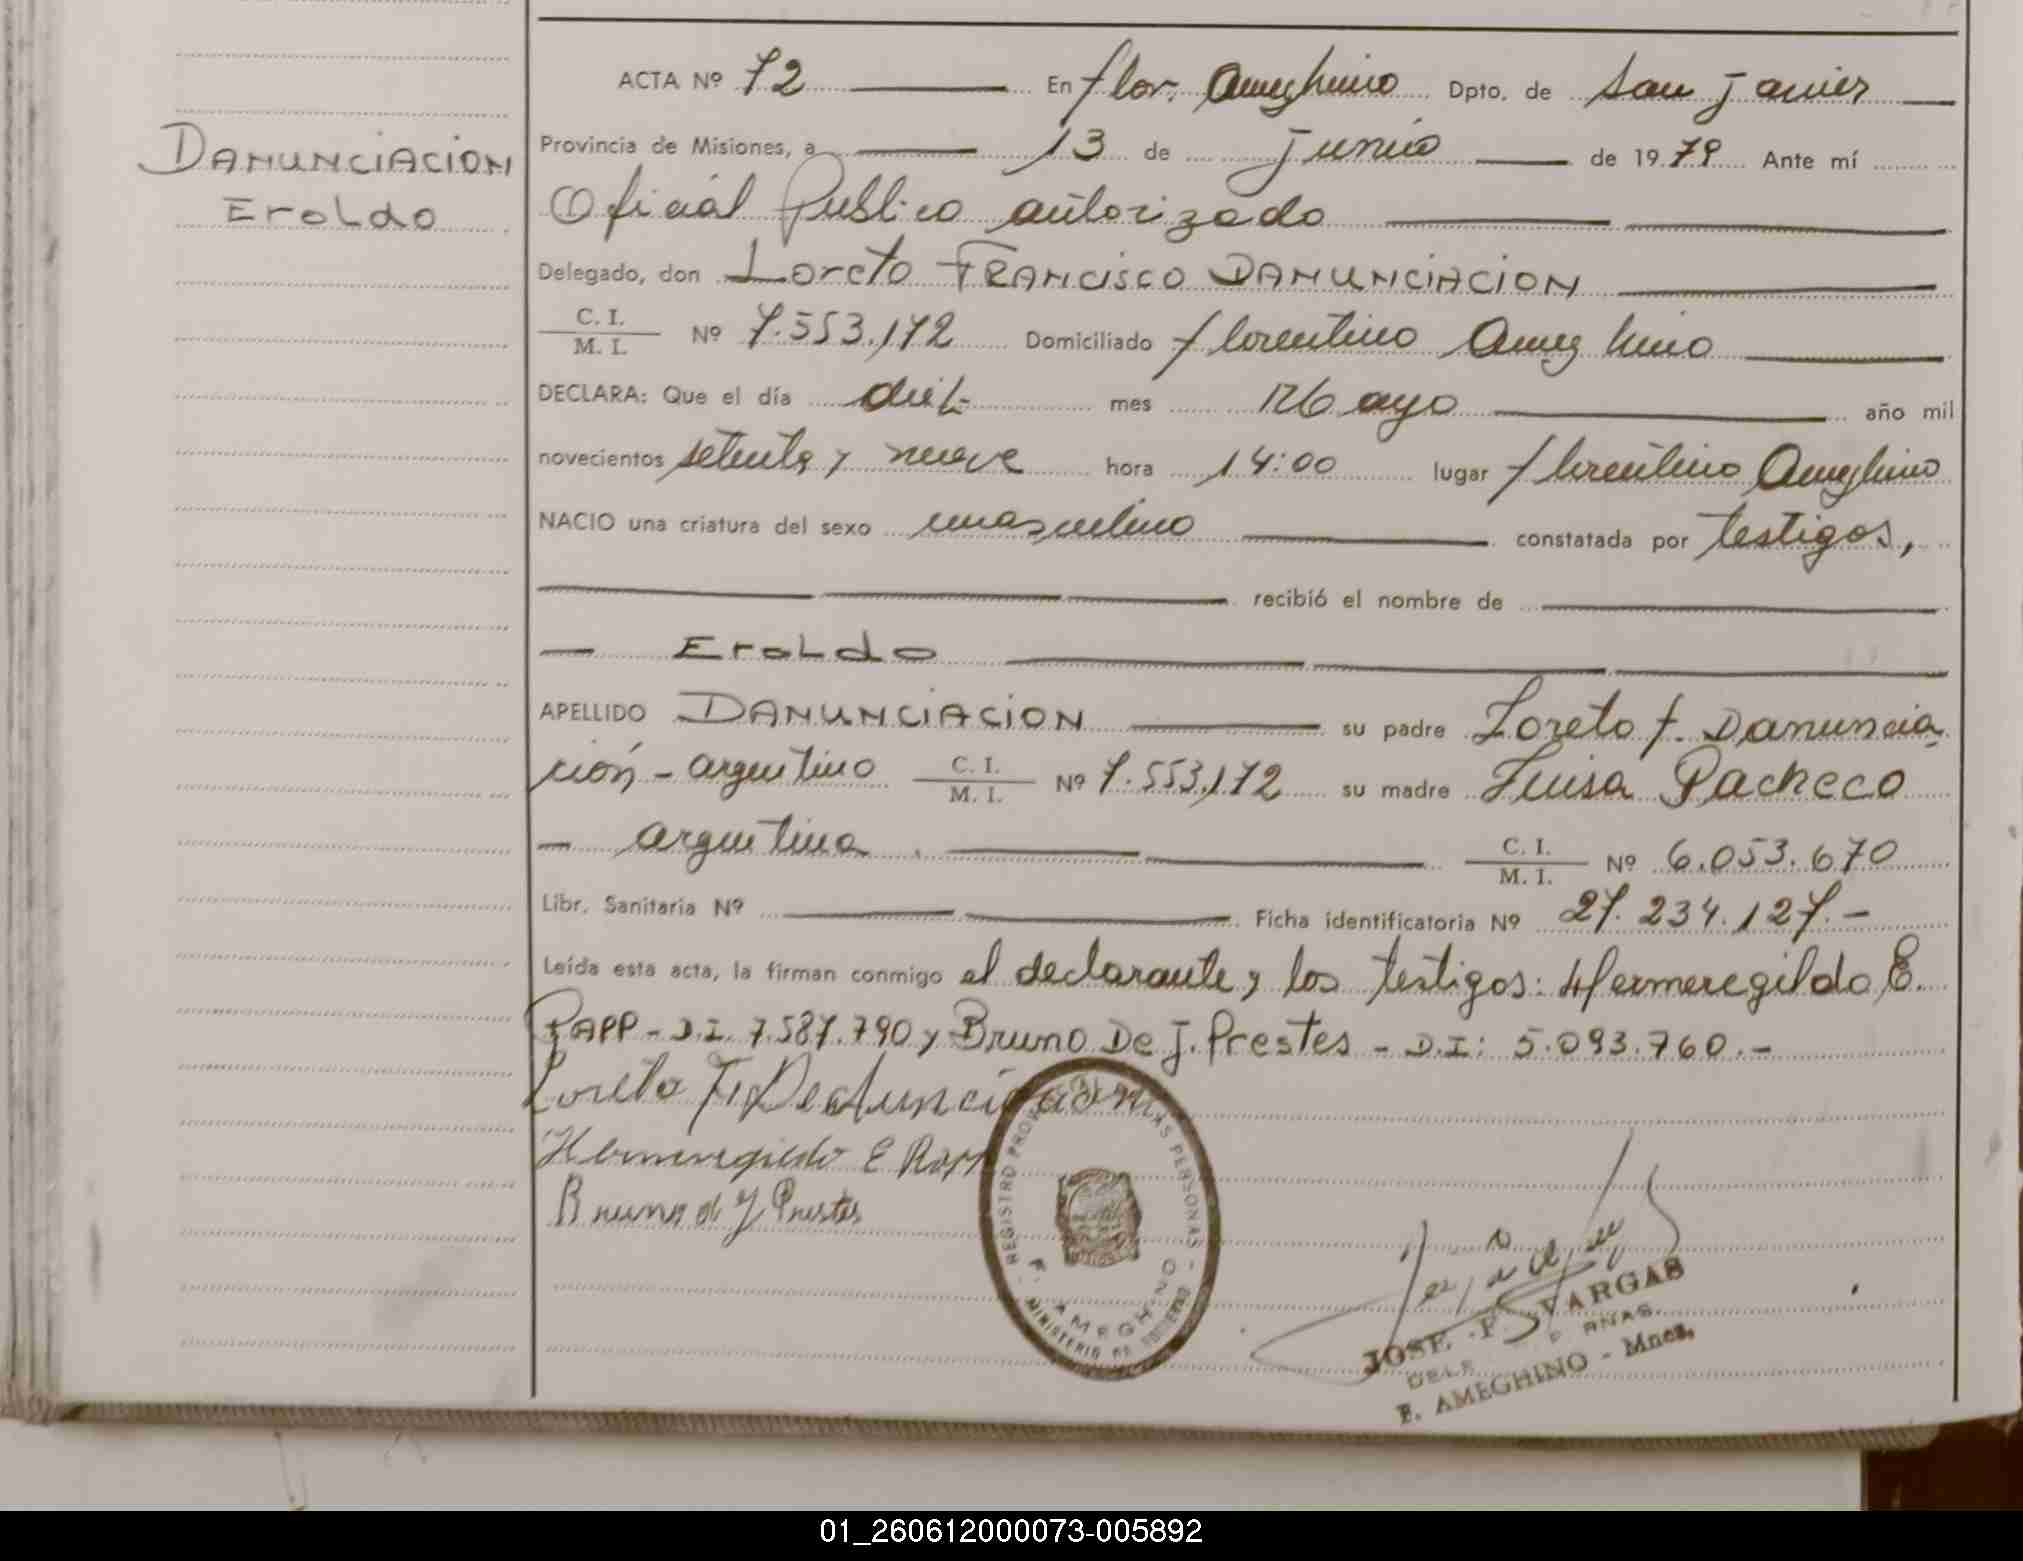 ACTA Nº 72 En Flor. Ameghino Dpto. de San Javier
DANUNCIACION
Provincia de Misiones, a 13 de junio de 1979 Ante mí
Eroldo
Oficial Publico autorizado
Delegado, don Loreto FRANCISCO DANUNCIACION
C. I.
M. I. Nº 7.553.172 Domiciliado Florentino Ameghino
DECLARA: Que el día diez mes Mayo año mil
novecientos setenta y nueve hora 14:00 lugar Florentino Ameghino
NACIO una criatura del sexo masculino constatada por testigos,
recibió el nombre de
Eroldo
APELLIDO DANUNCIACION su padre Loreto F. Danuncia
ción - argentino C. I. M. I. Nº 7.553.172 su madre Luisa Pacheco
- argentina C. I. M. I. Nº 6.053.670
Libr. Sanitaria Nº Ficha identificatoria Nº 27.234.127.-
Leída esta acta, la firman conmigo el declarante y los testigos: Hermeregildo E.
RAPP - D.I. 7.587.790 y Bruno De J. Prestes - D.I: 5.093.760.-
Loreto F.
Hermeregildo E Rapp
Bruno d J Prestes
REGISTRO PERSONAS
F. AMEGHINO
MINISTERIO DE GOBIERNO
JOSE F. VARGAS
F. AMEGHINO - Mnes.
01_260612000073-005892